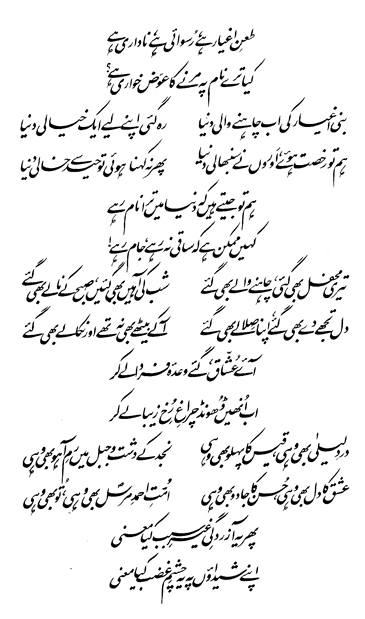 طعنِ اغیار ہے، رسوائی ہے، ناداری ہے
کیا ترے نام پہ مرنے کا عوض خواری ہے؟
بنی اغیار کی اب چاہنے والی دنیا رہ گئی اپنے لیے ایک خیالی دنیا
ہم تو رخصت ہوئے، اَوروں نے سنبھالی دنیا پھر نہ کہنا ہوئی توحید سے خالی دنیا
ہم تو جیتے ہیں کہ دنیا میں ترا نام رہے
کہیں ممکن ہے کہ ساقی نہ رہے، جام رہے!
تیری محفل بھی گئی، چاہنے والے بھی گئے شب کی آہیں بھی گئیں، صبح کے نالے بھی گئے
دل تجھے دے بھی گئے، اپنا صِلا لے بھی گئے آ کے بیٹھے بھی نہ تھے اور نکالے بھی گئے
آئے عُشّاق، گئے وعدۂ فردا لے کر
اب اُنھیں ڈھونڈ چراغِ رُخِ زیبا لے کر
دردِ لیلیٰ بھی وہی، قیس کا پہلو بھی وہی نجد کے دشت و جبل میں رمِ آہو بھی وہی
عشق کا دل بھی وہی، حُسن کا جادو بھی وہی اُمّتِ احمدِ مرسلؐ بھی وہی، تُو بھی وہی
پھر یہ آزردگیِ غیرِ سبب کیا معنی
اپنے شیداؤں پہ یہ چشمِ غضب کیا معنی